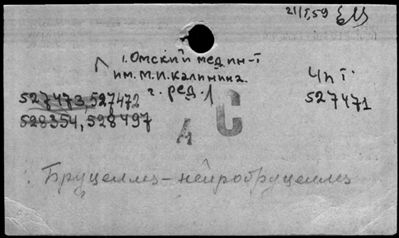 21/I 59
1. Омский мед. ин-т
им. М.И. Калинина.
г. ред. 1
Чп I.
527473, 527472
527471
528354, 528497
А С
Бруцеллез - нейробруцеллез